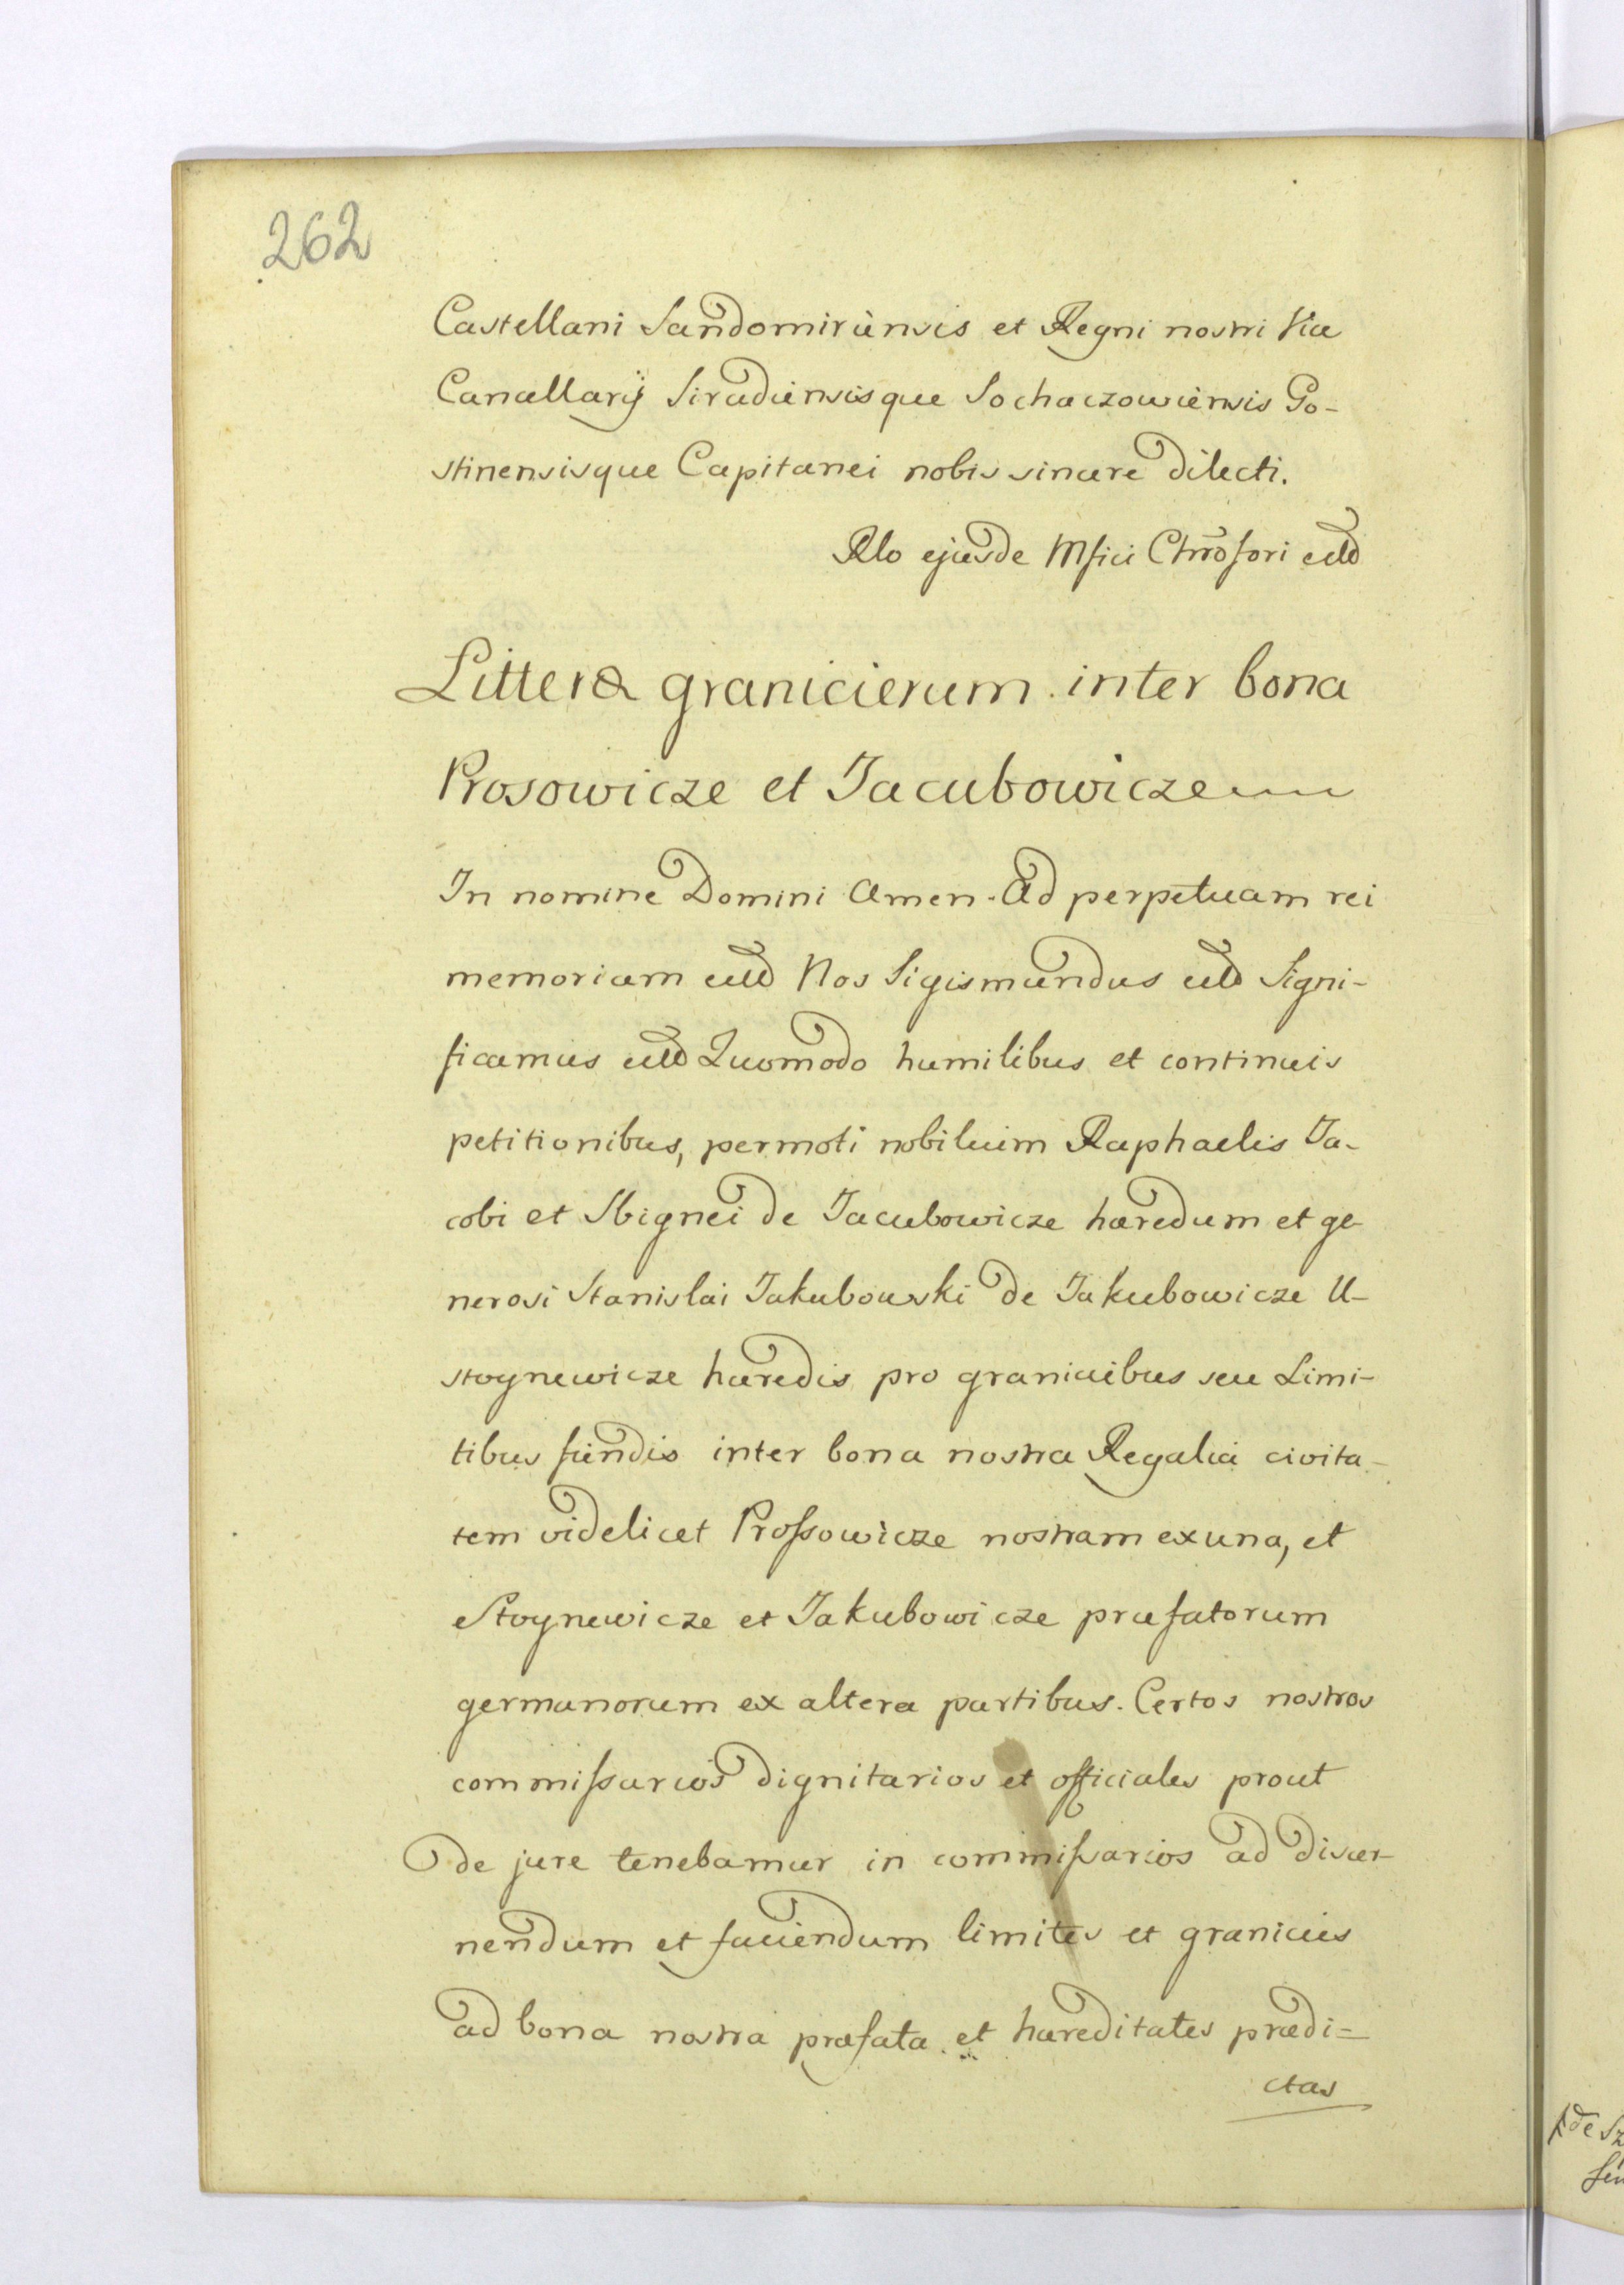 262
Castellani Sandomiriensis et Regni nostri Vice
Cancellarÿ Siradiensisque Sochaczowiensis Go-
stinensisque Capitanei nobis sincere dilecti.
Rlo ejusde Mfici Chrōfori
Litteræ granicierum inter bona
Prosowicze et Jacubowicze
In nomine Domini Amen. Ad perpetuam rei
memoriam Nos Sigismundus Signi-
ficamus Quomodo humilibus et continuis
petitionibus, permoti nobilium Raphaelis Ja-
cobi et Sbignei de Jacubowicze hæredum et ge-
nerosi Stanislai Jakubowski de Jakubowicze U-
stoynewicze hæredis pro graniciebus seu Limi-
tibus fiendis inter bona nostra Regalia civita-
tem videlicet Prossowicze nostram ex una, et
Stoynewicze et Jakubowicze præfatorum
germanorum ex altera partibus. Certos nostros
commissarios dignitarios et officiales prout
de jure tenebamur in commissarios ad discer-
nendum et faciendum limites et granicies
ad bona nostra præfata et hæreditates prædi=
ctas
de Sz